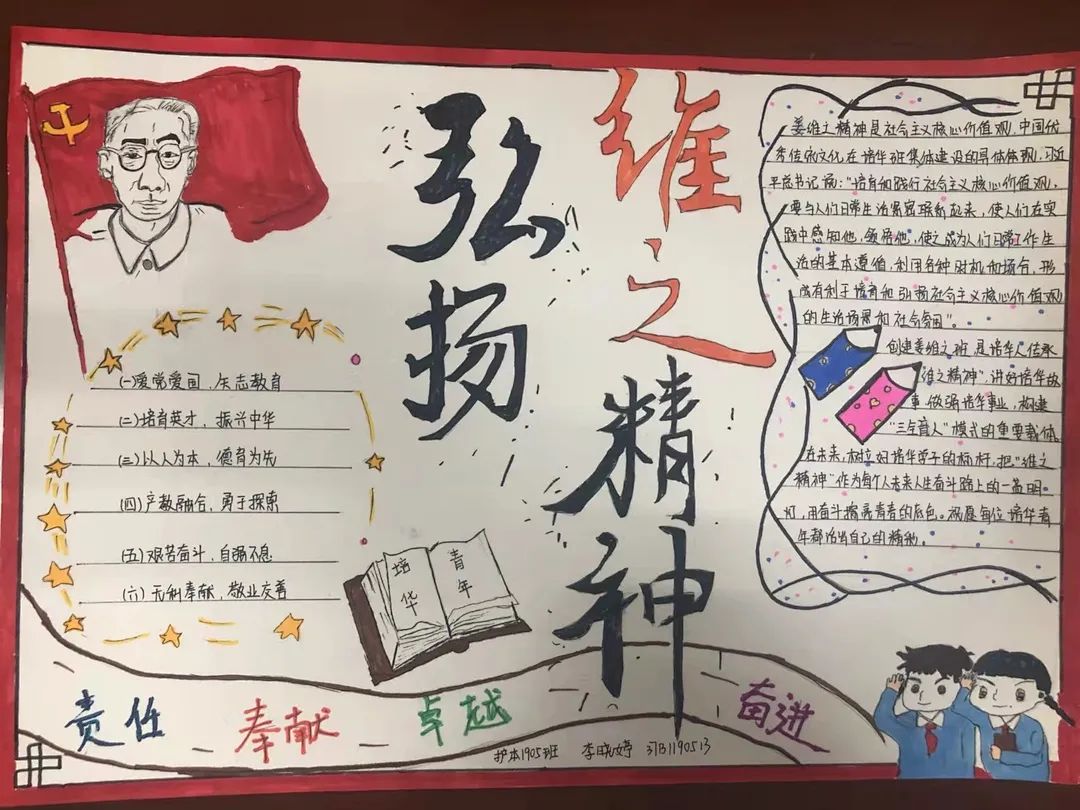 弘扬
维之精神
(一)爱党爱国、矢志教育
(二)培育英才、振兴中华
(三)以人为本、德育为先
(四)产教融合、勇于探索
(五)艰苦奋斗、自强不息
(六)无私奉献、敬业友善
培华
青年
姜维之精神是社会主义核心价值观,中国优
秀传统文化在培华班集体建设的具体体现,习近
平总书记说:"培育和践行社会主义核心价值观,
要与人们日常生活紧密联系起来,使人们在实
践中感知他,领悟他,使之成为人们日常工作生
活的基本遵循,利用各种时机和场合,形
成有利于培育和弘扬社会主义核心价值观
的生活场景和社会氛围"。
创建姜维之班是培华人传承
维之精神",讲好培华故
事,做强培华事业,构建
"三全育人"模式的重要载体。
在未来,树立好培华学子的标杆,把"维之
精神"作为每个人未来人生奋斗路上的一盏明
灯,用奋斗擦亮青春的底色。祝愿每位培华青
年都活出自己的精彩。
责任
奉献
卓越
奋进
护本1905班 李晓婷